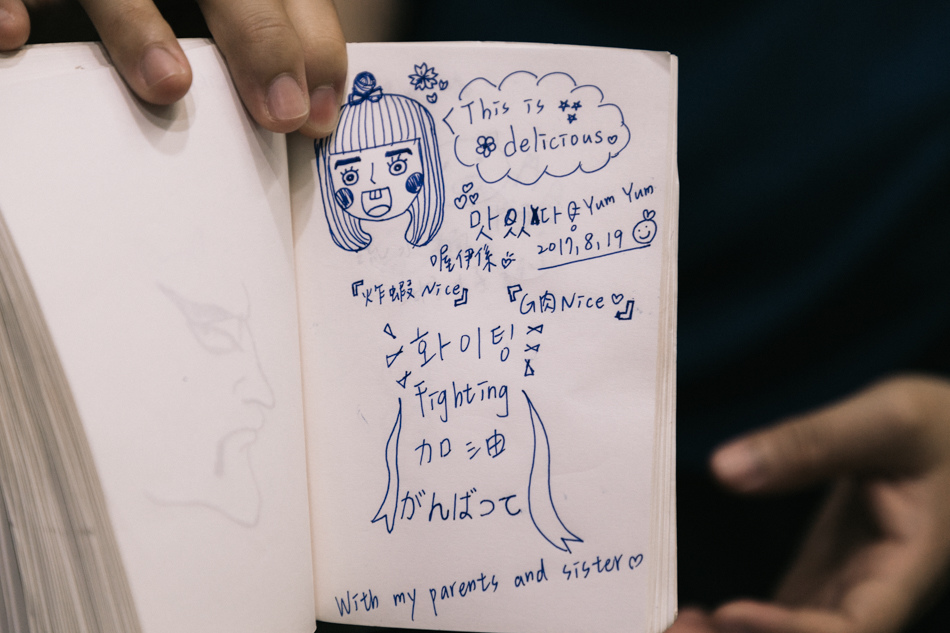 This is
delicious
맛있다요 Yum Yum
2017,8,19
喔伊係
『炸蝦 Nice』
『G肉Nice♡』
화이팅
Fighting
加油
がんばって
With my parents and sister♡